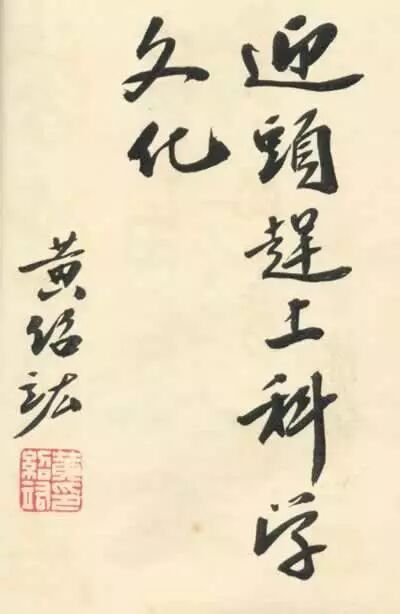 迎頭趕上科学
文化
黄绍竑
黄绍竑印